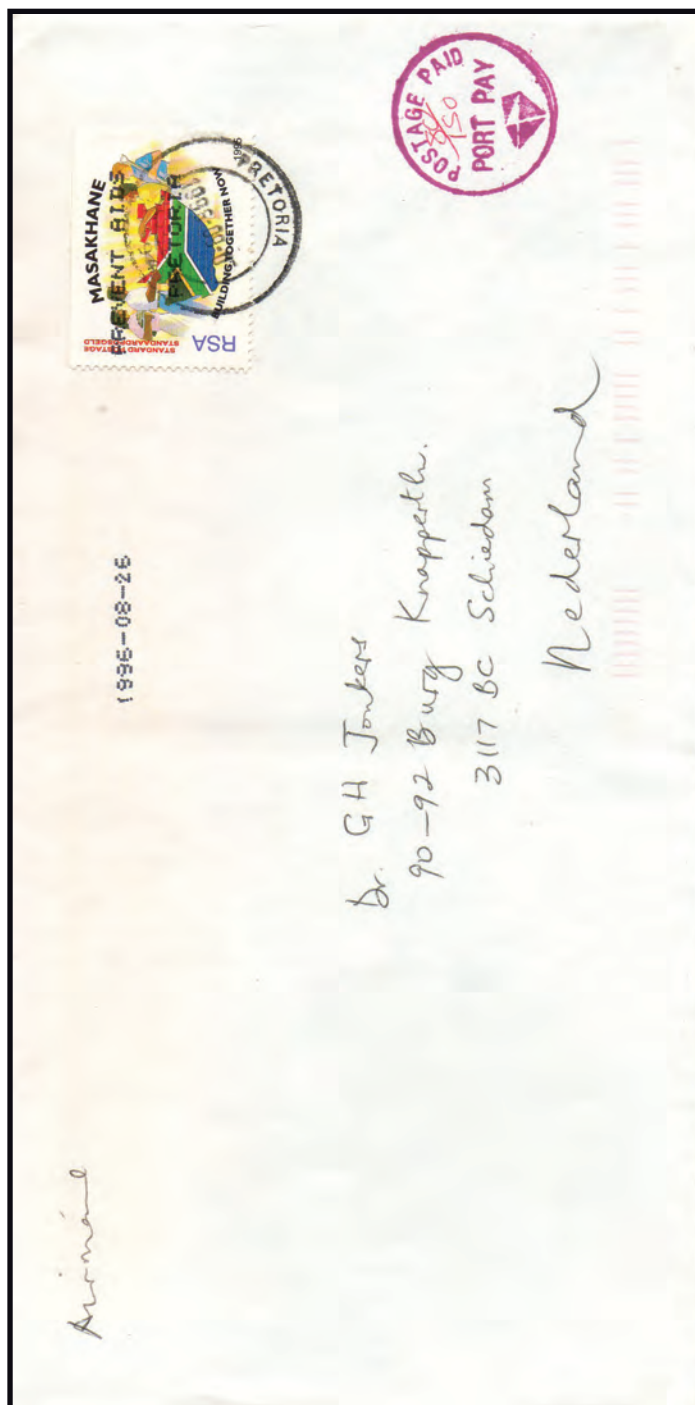 Airmail
1996-08-26
MASAKHANE
PREVENT AIDS
PRETORIA
BUILDING TOGETHER NOW
1995
RSA
STANDARD POSTAGE
STANDAARDPOSGELD
PRETORIA
POSTAGE PAID
150
PORT PAY
Dr. GH Jonkers
90-92 Burg Knapperth.
3117 BC Schiedam
Nederland